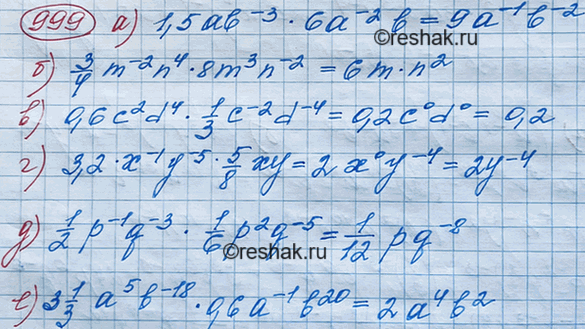 999 а) 1,5ab⁻³ · 6a⁻²b = 9a⁻¹b⁻²
©reshak.ru
б) 3/4 m⁻²n⁴ · 8m³n⁻² = 6m·n²
в) 0,6c²d⁴ · 1/3 c⁻²d⁻⁴ = 0,2c⁰d⁰ = 0,2
г) 3,2·x⁻¹y⁻⁵ · 5/8 xy = 2x⁰y⁻⁴ = 2y⁻⁴
д) 1/2 p⁻¹q⁻³ · 1/6 p²q⁻⁵ = 1/12 pq⁻⁸
©reshak.ru
е) 3 1/3 a⁵b⁻¹⁸ · 0,6a⁻¹b²⁰ = 2a⁴b²